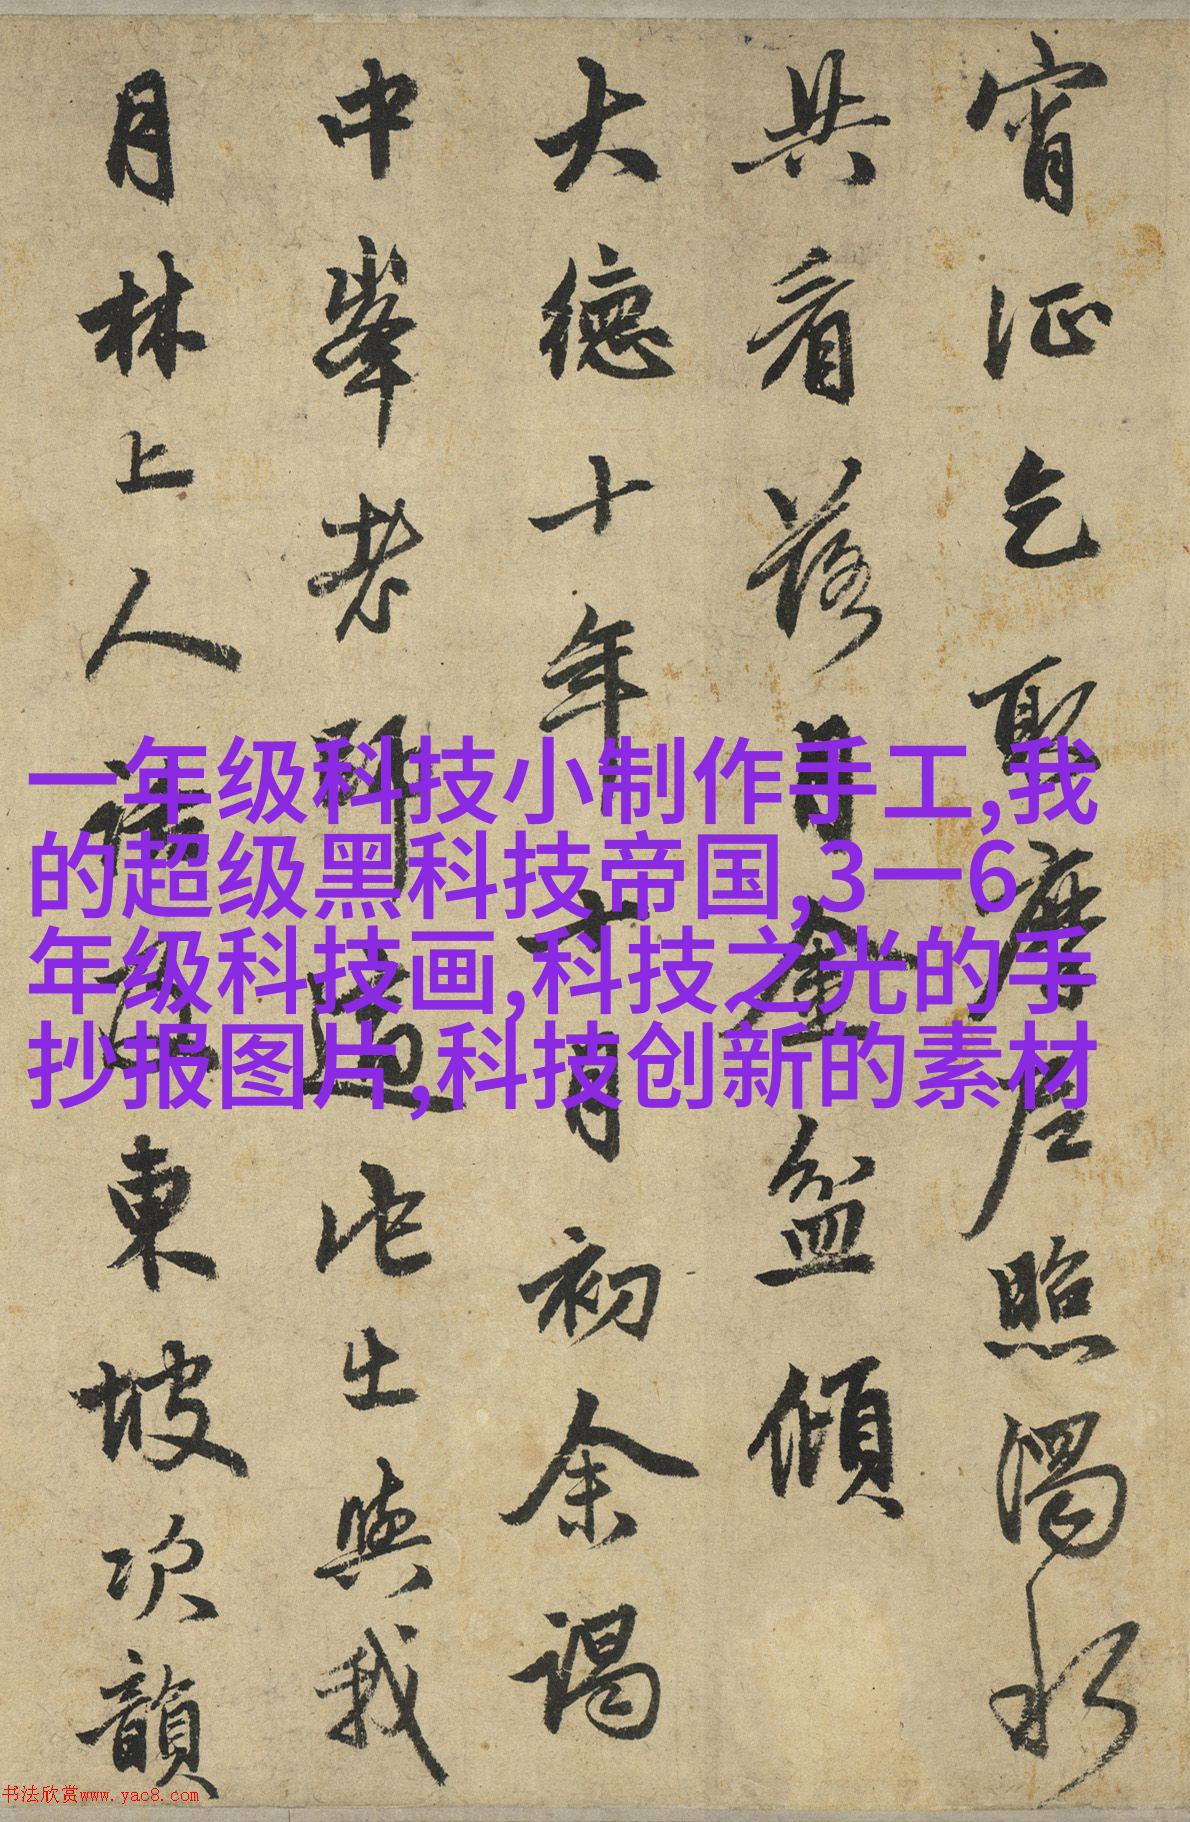 宵征乞取摩尼照濁水
共看落月金盆傾
大德十年十月初余謁
中峯老師適他出與我
月林上人東坡次韻
一年级科技小制作手工,我
的超级黑科技帝国,3一6
年级科技画,科技之光的手
抄报图片,科技创新的素材
书法欣赏www.yac8.com